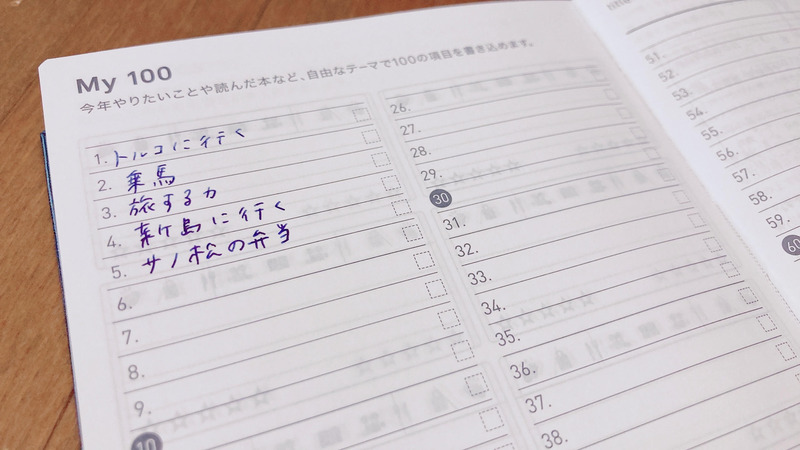 My 100
今年やりたいことや読んだ本など、自由なテーマで100の項目を書き込めます。
1. トルコに行く
2. 乗馬
3. 旅する力
4. 青ヶ島に行く
5. サノ松の弁当
6.
7.
8.
9.
10
26.
27.
28.
29.
30
31.
32.
33.
34.
35.
36.
37.
38.
title
51.
52.
53.
54.
55.
56.
57.
58.
59.
60